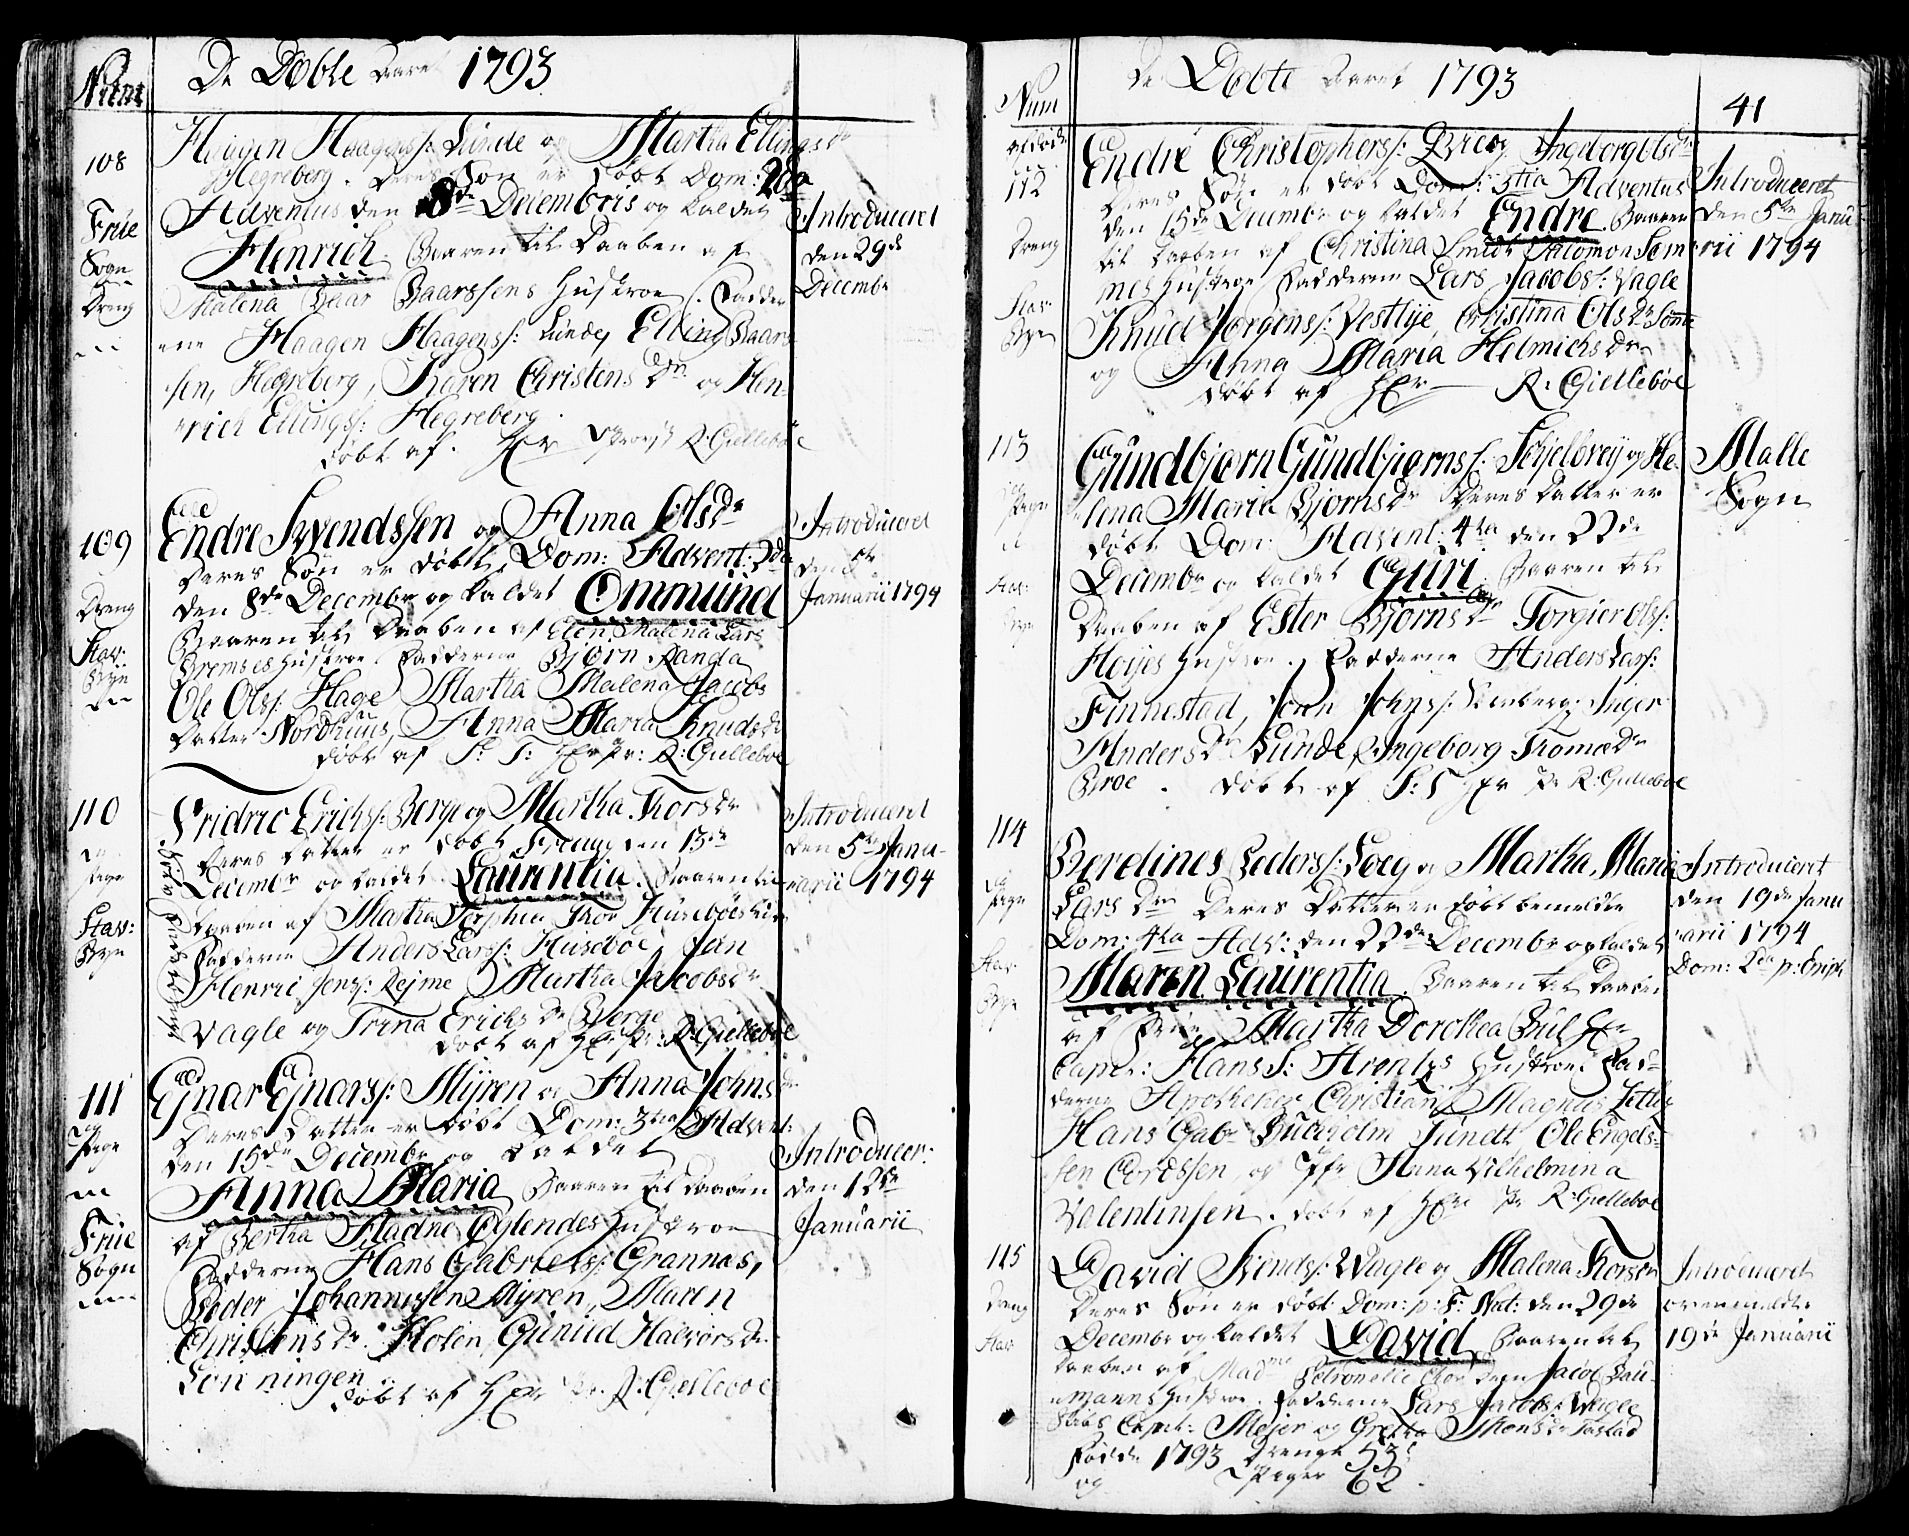 Num
De Døbte Aaret 1793
108
Frue
Sogn
Dreng
Haagen Haagenss: Lunde og Martha Ellingsdr
Hegreberg. Deres Søn er døbt Dom: 2da
Adventus den 8de Decembris og kaldet
Henrich Baaren til Daaben af
Malena Baarssens Hustroe. Fadder
ene Haagen Haagenss: Lunde, Elling Baars
sen, Hegreberg, Karen Christensdr og Hen
rich Ellingss: Hegreberg.
døbt af Her Provst R: Gielleboe
Introduceret
den 29de
Decembr
109
Dreng
Stav:
Bye
Endre Svendssen og Anna Olsdr
Deres Søn er døbt Dom: Advent: 2da
den 8de Decembr og kaldet Ommund
Baaren til Daaben af Elen Malena Lars
Bremses Hustroe. Fadderne Biørn Randa
Ole Olss: Hage Martha Malena Jacobs
Datter Nordhuus, Anna Maria Knudsdr
døbt af S: T: Her Pr: R: Gielleboe
Introduceret
den 5te
Januarii 1794
110
Pige
Stav:
Bye
Fridric Erichss: Berge og Martha Thorsdr
Deres Datter er døbt Fredag den 13de
Decembr og kaldet Laurentia. Baaren til
Daaben af Martha Huseboes
Fadderne Anders Larss: Huseboe, Jan
Henric Jenss: Rejme Martha Jacobsdr
Vagle og Trina Erichsdr Berge
døbt af Her Pr: R: Gielleboe
Introduceret
den 5te Janu-
arii 1794
111
Pige
Frue
Sogn
Ejnar Ejnarss: Myren og Anna Johnsdr
Deres Datter er døbt Dom: 3tia Advent:
den 15de Decembr og kaldet
Anna Maria Baaren til Daaben
af Bertha Eglendes Hustroe
Fadderne Hans Gabrielss: Grannas,
Peder Johannessen Myren, Maren
Christensdr: Holen, Gunild Halvorsdr
Sørningen.
døbt af Her Pr: R: Gielleboe
Introducer:
den 12te
Januarii
Num
De Døbte Aaret 1793
41
112
Dreng
Stav:
Bye
Endre Christophers: og Ingeborg Olsdr
Deres Søn er døbt Dom: 3tia Adventus
den 15de Decembr og kaldet Endre. Baaren
til Daaben af Christina Smidt Salomon Sem
mes Hustroe Fadderne Lars Jacobs: Vagle
Knud Jørgenss: Vestlye, Christina Olsdr Sømme
og Anna Maria Helmichsdr
døbt af Her R: Gielleboe
Introduceret
den 5te Janu
arii 1794
113
Pige
Stav:
Bye
Gundbjørn Gundbjørnss: Schjelbrej og He
lena Maria Bjørnsdr Deres Datter er
døbt Dom: Advent: 4ta den 22de
Decembr og kaldet Guri Baaren til
Daaben af Ester Bjørnsdr Torgier Olss:
Højes Hustroe. Fadderne Anders Larss:
Finnestad, Johnss: Inger
Andersdr Lunde, Ingeborg Tromædr
Broe. døbt af S: T Her Pr R: Gielleboe
Malle
Sogn
114
Pige
Stav:
Bye
Berdines Peders: Soeg og Martha Maria
Larsdr Deres Datter er døbt bemeldte
Dom: 4ta Adv: den 22de Decembr og kaldet
Maren Laurentia. Baaren til Daaben
af Martha Dorothea Bull Her
Capit: Hans S: Arentzs Hustroe. Fad
derne Apotheker Christian Magnus Zetlitz
Hans Gab: Buchholm Sundt, Ole Engels-
sen og Jfr Anna Wilhelmina
Valentinsen. døbt af Her Pr R: Gielleboe
Introduceret
den 19de Janu
arii 1794
Dom: 2da p: Epiph
115
Dreng
Stav
David Svends: Wagle og Malena Thorsdr
Deres Søn er døbt Dom: p: F: Nat: den 29de
Decembr og kaldet David Baaren til
Daaben af Madme Petronelle Jacob Bau-
manns Hustroe. Fadderne Lars Jacobs: Wagle
Capit: Mejer og Gretha
Fødde 1793 Drenge 53
og Piger 62.
Introduceret
ovenmeldte
19de Januarii